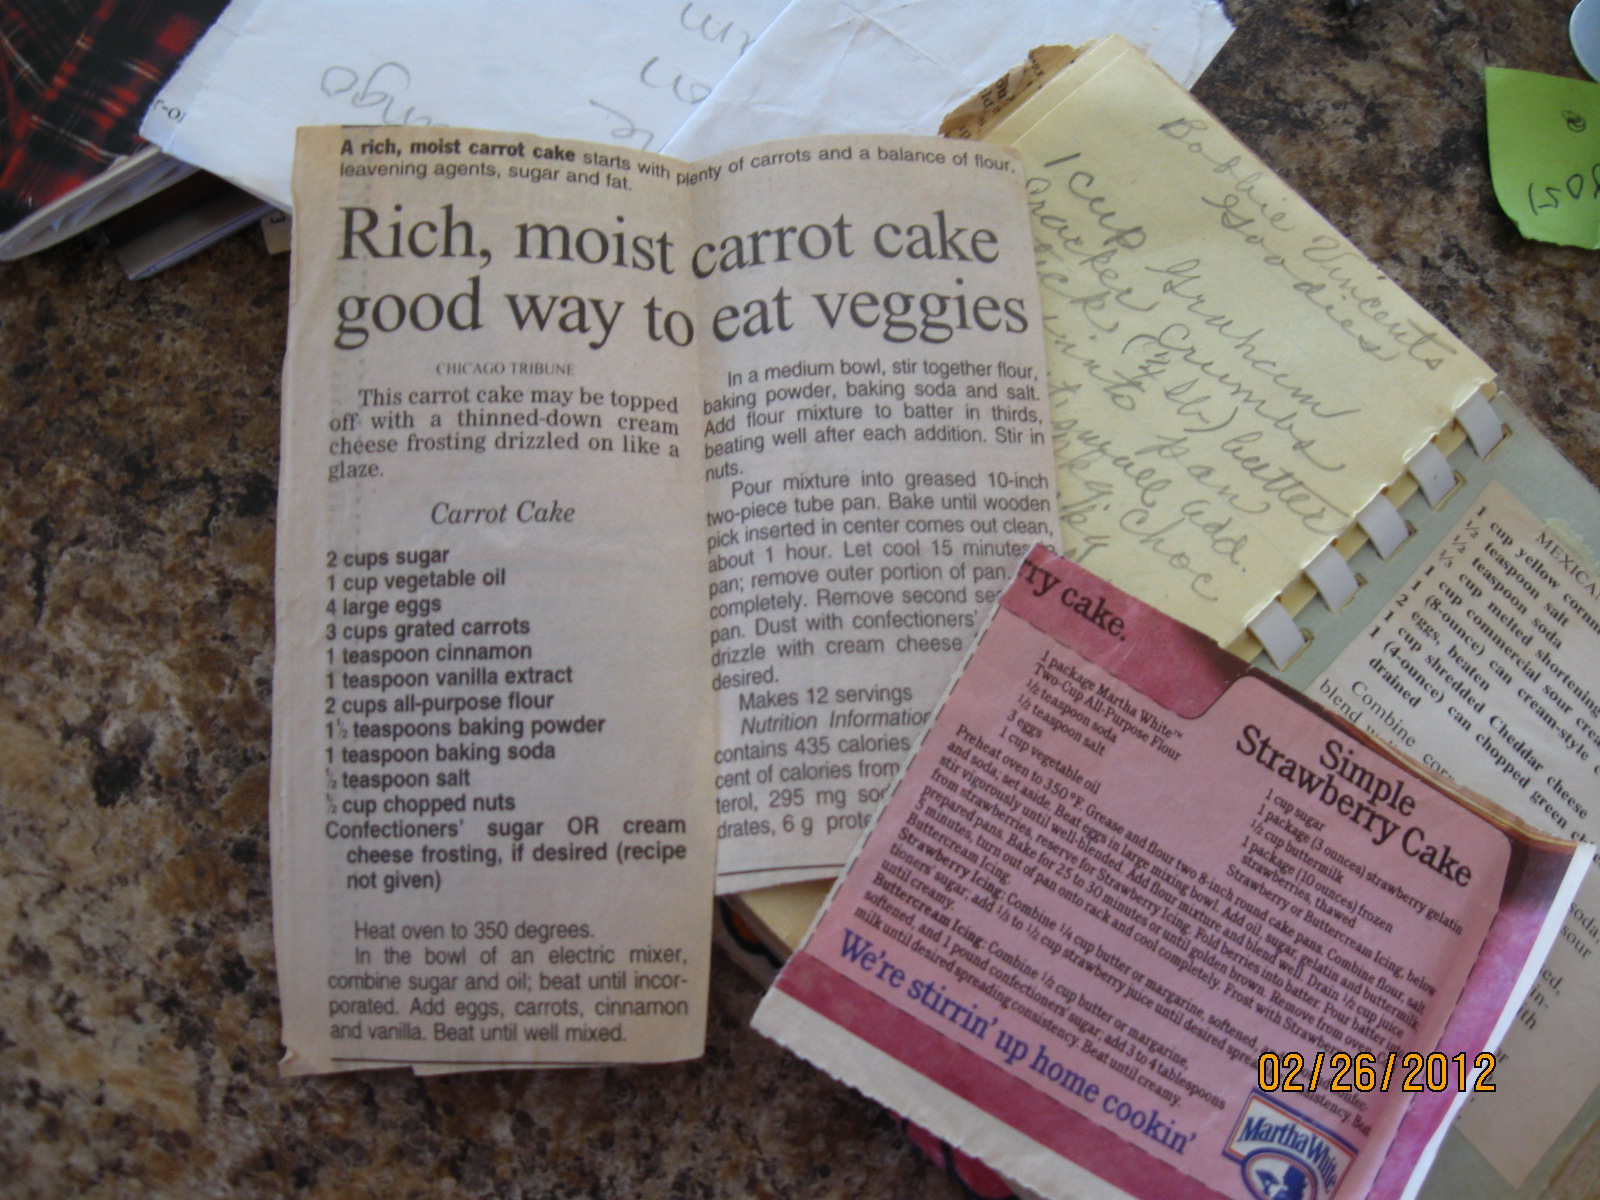 A rich, moist carrot cake starts with plenty of carrots and a balance of flour,
leavening agents, sugar and fat.
Rich, moist carrot cake
good way to eat veggies
CHICAGO TRIBUNE
This carrot cake may be topped
off with a thinned-down cream
cheese frosting drizzled on like a
glaze.
Carrot Cake
2 cups sugar
1 cup vegetable oil
4 large eggs
3 cups grated carrots
1 teaspoon cinnamon
1 teaspoon vanilla extract
2 cups all-purpose flour
1½ teaspoons baking powder
1 teaspoon baking soda
½ teaspoon salt
½ cup chopped nuts
Confectioners' sugar OR cream
cheese frosting, if desired (recipe
not given)
Heat oven to 350 degrees.
In the bowl of an electric mixer,
combine sugar and oil; beat until incor-
porated. Add eggs, carrots, cinnamon
and vanilla. Beat until well mixed.
In a medium bowl, stir together flour,
baking powder, baking soda and salt.
Add flour mixture to batter in thirds,
beating well after each addition. Stir in
nuts.
Pour mixture into greased 10-inch
two-piece tube pan. Bake until wooden
pick inserted in center comes out clean,
about 1 hour. Let cool 15 minutes
pan; remove outer portion of pan.
completely. Remove second
pan. Dust with confectioners'
drizzle with cream cheese
desired.
Makes 12 servings
Nutrition Information
contains 435 calories
cent of calories from
terol, 295 mg
drates, 6 g
Bobbie Vincents
Goodies
1 cup Graham
Cracker Crumbs
(½ lb) butter
into pan
add.
choc
rry cake.
Simple
Strawberry Cake
1 package Martha White™
Two-Cup All-Purpose Flour
½ teaspoon soda
½ teaspoon salt
3 eggs
1 cup vegetable oil
1 cup sugar
1 package (3 ounces) strawberry gelatin
½ cup buttermilk
1 package (10 ounces) frozen
strawberries, thawed
Strawberry or Buttercream Icing, below
Preheat oven to 350°F. Grease and flour two 8-inch round cake pans. Combine flour, salt
and soda; set aside. Beat eggs in large mixing bowl. Add oil, sugar, gelatin and buttermilk,
stir vigorously until well-blended. Add flour mixture and blend well. Drain ½ cup juice
from strawberries, reserve for Strawberry Icing. Fold berries into batter. Pour batter into
prepared pans. Bake for 25 to 30 minutes or until golden brown. Remove from oven
5 minutes, turn out of pan onto rack and cool completely. Frost with Strawberry
Buttercream Icing.
Strawberry Icing: Combine ¼ cup butter or margarine, softened,
tioners' sugar; add ⅓ to ½ cup strawberry juice until desired
until creamy.
Buttercream Icing: Combine ½ cup butter or margarine,
softened, and 1 pound confectioners' sugar; add 3 to 4 tablespoons
milk until desired spreading consistency. Beat until creamy.
We're stirrin' up home cookin'
Martha White
1 cup yellow
½ teaspoon salt
½ teaspoon soda
⅓ cup melted shortening
1 cup commercial sour
1 (8-ounce) can cream-style
2 eggs, beaten
1 cup shredded Cheddar cheese
1 (4-ounce) can chopped green
drained
Combine
blend
02/26/2012